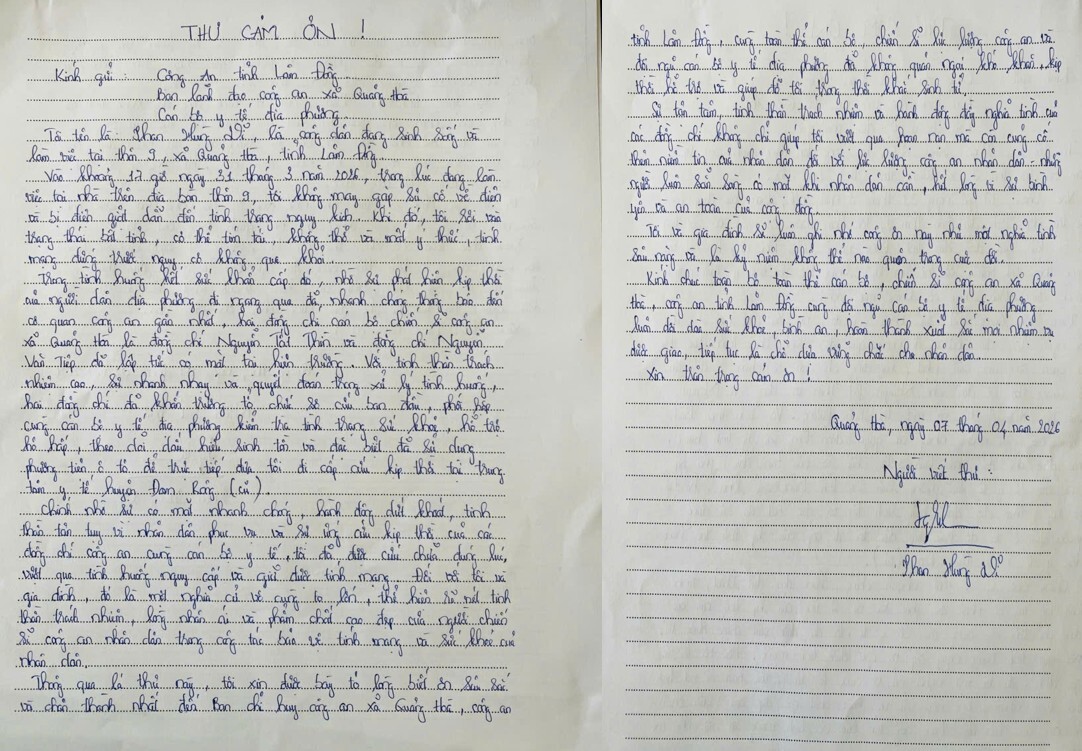 THƯ CẢM ƠN !
Kính gửi : Công An tỉnh Lâm Đồng
Ban lãnh đạo công an xã Quảng Hòa
Cán bộ y tế địa phương
Tôi tên là : Phan Hùng Sỹ, là công dân đang sinh sống và
làm việc tại thôn 9, xã Quảng Hòa, tỉnh Lâm Đồng.
Vào khoảng 17 giờ ngày 31 tháng 3 năm 2026, trong lúc đang làm
việc tại nhà trên địa bàn thôn 9, tôi không may gặp sự cố về điện
và bị điện giật dẫn đến tình trạng nguy kịch. Khi đó, tôi rơi vào
trạng thái bất tỉnh, cơ thể tím tái, không thở và mất ý thức, tính
mạng đứng trước nguy cơ không qua khỏi.
Trong tình huống hết sức khẩn cấp đó, nhờ sự phát hiện kịp thời
của người dân địa phương đi ngang qua đã nhanh chóng thông báo đến
cơ quan công an gần nhất, hai đồng chí cán bộ chiến sĩ công an
xã Quảng Hòa là đồng chí Nguyễn Tất Thiên và đồng chí Nguyễn
Văn Tiếp đã lập tức có mặt tại hiện trường. Với tinh thần trách
nhiệm cao, sự nhanh nhạy và quyết đoán trong xử lý tình huống,
hai đồng chí đã khẩn trương tổ chức sơ cứu ban đầu, phối hợp
cùng cán bộ y tế địa phương kiểm tra tình trạng sức khỏe, hỗ trợ
hô hấp, theo dõi dấu hiệu sinh tồn và đặc biệt đã sử dụng
phương tiện ô tô để trực tiếp đưa tôi đi cấp cứu kịp thời tại trung
tâm y tế huyện Đam Rông (cũ)
Chính nhờ sự có mặt nhanh chóng, hành động dứt khoát, tinh
thần tận tụy vì nhân dân, phục vụ và sự ứng cứu kịp thời của các
đồng chí công an cùng cán bộ y tế, tôi đã được cứu chữa đúng lúc,
vượt qua tình huống nguy cấp và giữ được tính mạng. Đối với tôi và
gia đình, đó là một nghĩa cử vô cùng to lớn, thể hiện rõ nét tinh
thần trách nhiệm, lòng nhân ái và phẩm chất cao đẹp của người chiến
sĩ công an nhân dân trong công tác bảo vệ tính mạng và sức khỏe của
nhân dân.
Thông qua lá thư này, tôi xin được bày tỏ lòng biết ơn sâu sắc
và chân thành nhất đến Ban chỉ huy công an xã Quảng Hòa, công an
tỉnh Lâm Đồng, cùng toàn thể cán bộ chiến sĩ lực lượng công an và
đội ngũ cán bộ y tế địa phương đã không quản ngại khó khăn, kịp
thời hỗ trợ và giúp đỡ tôi trong thời khắc sinh tử.
Sự tận tâm, tinh thần trách nhiệm và hành động đầy nghĩa tình của
các đồng chí không chỉ giúp tôi vượt qua hoạn nạn mà còn củng cố
thêm niềm tin của nhân dân đối với lực lượng công an nhân dân - những
người luôn sẵn sàng có mặt khi nhân dân cần, hết lòng vì sự bình
yên và an toàn của cộng đồng.
Tôi và gia đình sẽ luôn ghi nhớ công ơn này như một nghĩa tình
sâu nặng và là kỷ niệm không thể nào quên trong cuộc đời.
Kính chúc toàn bộ toàn thể cán bộ, chiến sĩ công an xã Quảng
Hòa, công an tỉnh Lâm Đồng cùng đội ngũ cán bộ y tế địa phương
luôn dồi dào sức khỏe, bình an, hoàn thành xuất sắc mọi nhiệm vụ
được giao, tiếp tục là chỗ dựa vững chắc cho nhân dân.
Xin trân trọng cảm ơn !
Quảng Hòa, ngày 07 tháng 04 năm 2026
Người viết thư :
Phan Hùng Sỹ